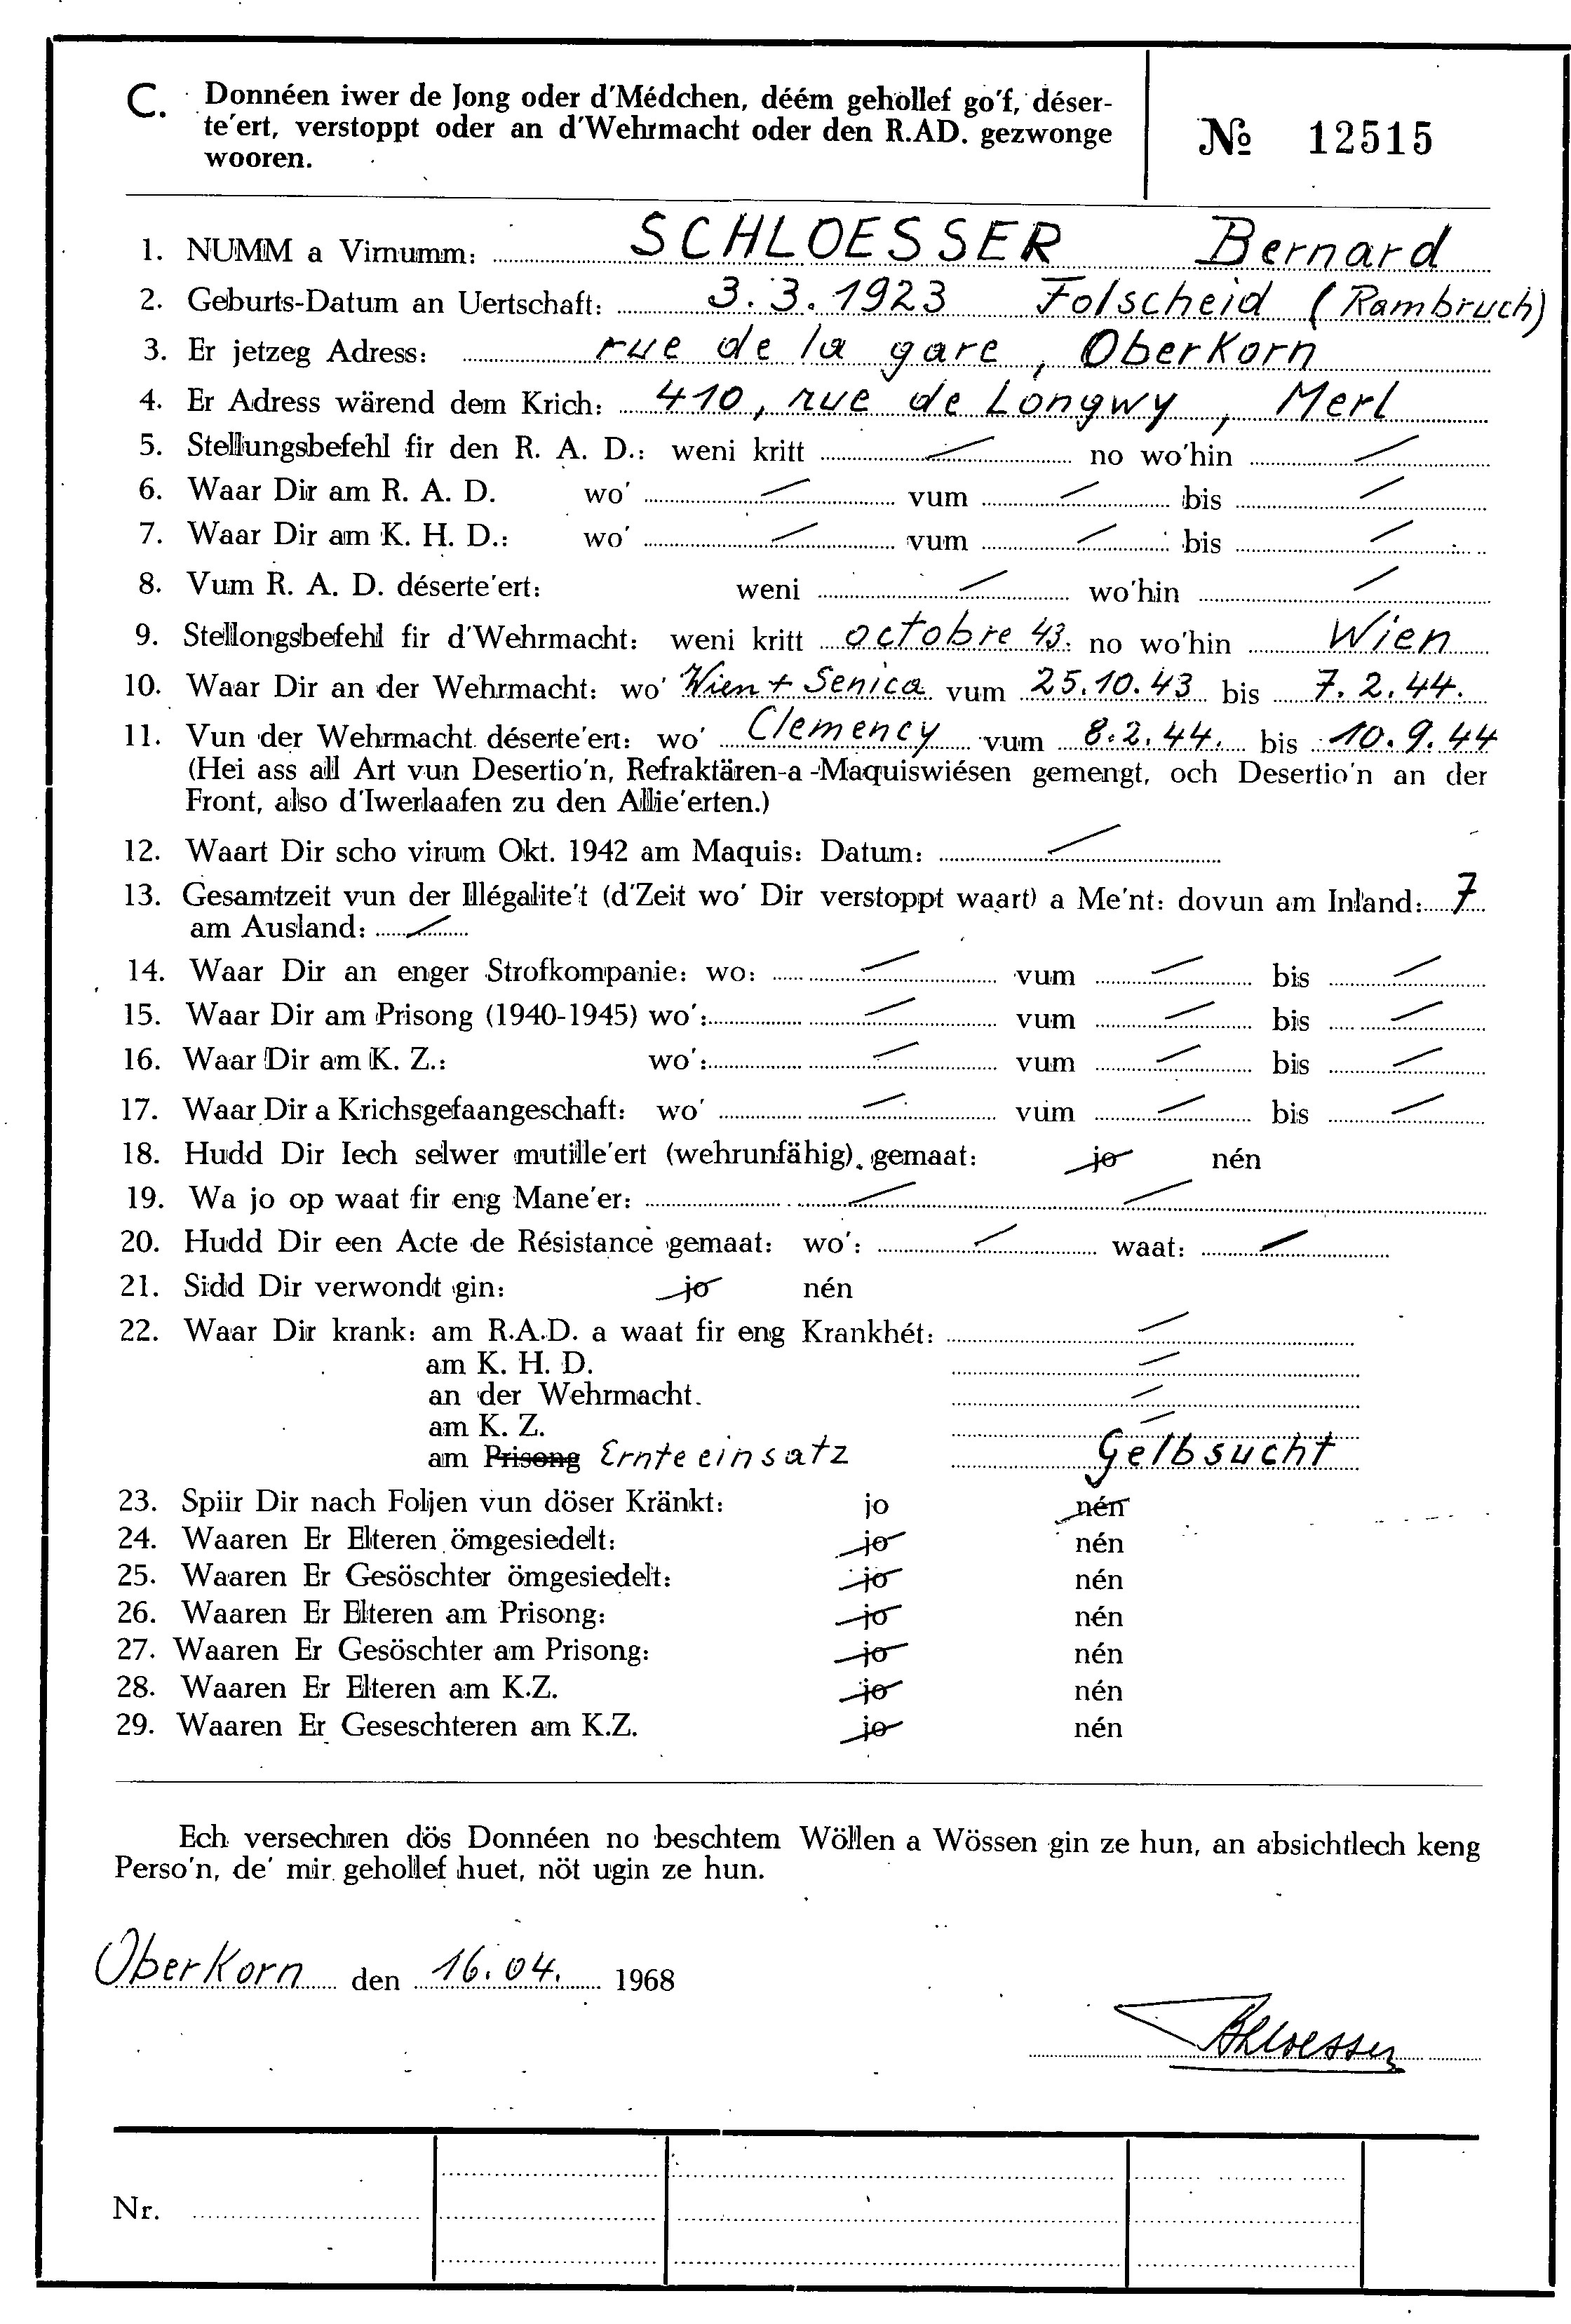 C. Donnéen iwer de Jong oder d'Médchen, déém gehollef go'f, déser-
te'ert, verstoppt oder an d'Wehrmacht oder den R.AD. gezwonge
wooren.
№ 12515
1. NUMM a Virnumm: SCHLOESSER Bernard
2. Geburts-Datum an Uertschaft: 3.3.1923 Folscheid (Rambruch)
3. Er jetzeg Adress: rue de la gare, Oberkorn
4. Er Adress wärend dem Krich: 410, rue de Longwy, Merl
5. Stellungsbefehl fir den R. A. D.: weni kritt / no wo'hin /
6. Waar Dir am R. A. D. wo' / vum / bis /
7. Waar Dir am K. H. D.: wo' / vum / bis /
8. Vum R. A. D. déserte'ert: weni / wo'hin /
9. Stellongsbefehl fir d'Wehrmacht: weni kritt octobre 43. no wo'hin Wien
10. Waar Dir an der Wehrmacht: wo' Wien + Senica vum 25.10.43 bis 7.2.44.
11. Vun der Wehrmacht déserte'ert: wo' Clemency vum 8.2.44. bis 10.9.44
(Hei ass all Art vun Desertio'n, Refraktären-a -Maquiswiésen gemengt, och Desertio'n an der
Front, also d'Iwerlaafen zu den Allie'erten.)
12. Waart Dir scho virum Okt. 1942 am Maquis: Datum: /
13. Gesamtzeit vun der Illégalite't (d'Zeit wo' Dir verstoppt waart) a Me'nt: dovun am Inland: 7
am Ausland: /
14. Waar Dir an enger Strofkompanie: wo: / vum / bis /
15. Waar Dir am Prisong (1940-1945) wo': / vum / bis /
16. Waar Dir am K. Z.: wo': / vum / bis /
17. Waar Dir a Krichsgefaangeschaft: wo' / vum / bis /
18. Hudd Dir Iech selwer mutille'ert (wehrunfähig), gemaat: jo nén
19. Wa jo op waat fir eng Mane'er: / /
20. Hudd Dir een Acte de Résistance gemaat: wo': / waat: /
21. Sidd Dir verwondt gin: jo nén
22. Waar Dir krank: am R.A.D. a waat fir eng Krankhét: /
am K. H. D. /
an der Wehrmacht. /
am K. Z. /
am Prisong Ernteeinsatz Gelbsucht
23. Spiir Dir nach Foljen vun döser Kränkt: jo nén
24. Waaren Er Elteren ömgesiedelt: jo nén
25. Waaren Er Gesöschter ömgesiedelt: jo nén
26. Waaren Er Elteren am Prisong: jo nén
27. Waaren Er Gesöschter am Prisong: jo nén
28. Waaren Er Elteren am K.Z. jo nén
29. Waaren Er Geseschteren am K.Z. jo nén
Ech versechren dös Donnéen no beschtem Wöllen a Wössen gin ze hun, an absichtlech keng
Perso'n, de' mir gehollef huet, nöt ugin ze hun.
Oberkorn den 16.04. 1968
Schloesser
Nr.